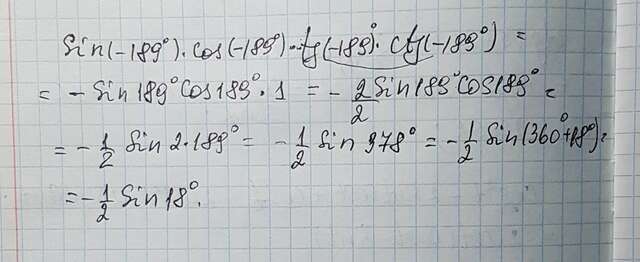 Sin(-189°)·cos(-189°)·tg(-189°)·ctg(-189°) =
= -Sin189°Cos189°·1 = -2/2 Sin189°Cos189° =
= -1/2 Sin2·189° = -1/2 Sin 378° = -1/2 Sin(360°+18°) =
= -1/2 Sin18°.